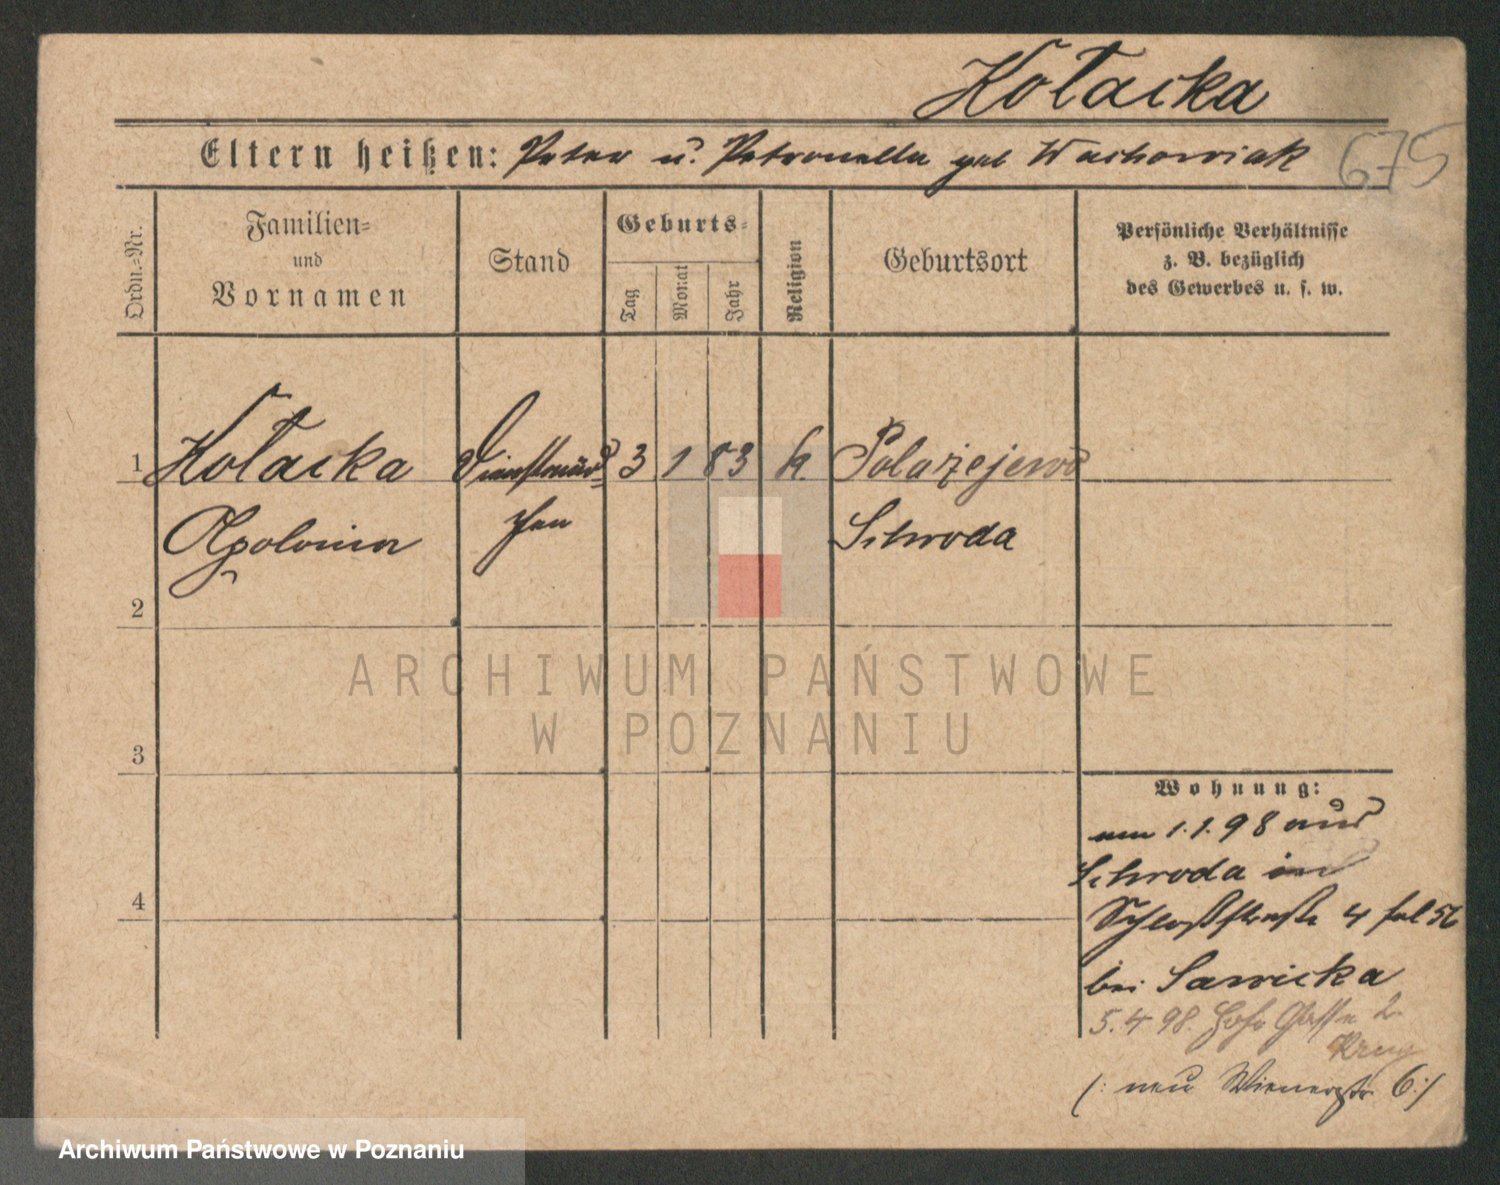 Kołacka
Eltern heißen: Peter u. Petronella geb Wachowiak
675
Ordn.-Nr.
Familien-
und
Vornamen
Stand
Geburts-
Tag
Monat
Jahr
Religion
Geburtsort
Persönliche Verhältnisse
z. B. bezüglich
des Gewerbes u. s. w.
1 Kołacka Dienstmäd= 3 1 83 k. Polazejewo
Apolonia chen Schroda
2
3
4
Wohnung:
am 1.1.98 aus
Schroda in
Schloßstraße 4 fol 56
bei Sawicka
5.4 98. Hohe Gasse 2.
Krug
(: neu Wienerstr 6 :)
ARCHIWUM PAŃSTWOWE
W POZNANIU
Archiwum Państwowe w Poznaniu